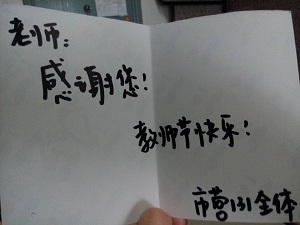 老师:
感谢您!
教师节快乐!
市营131全体